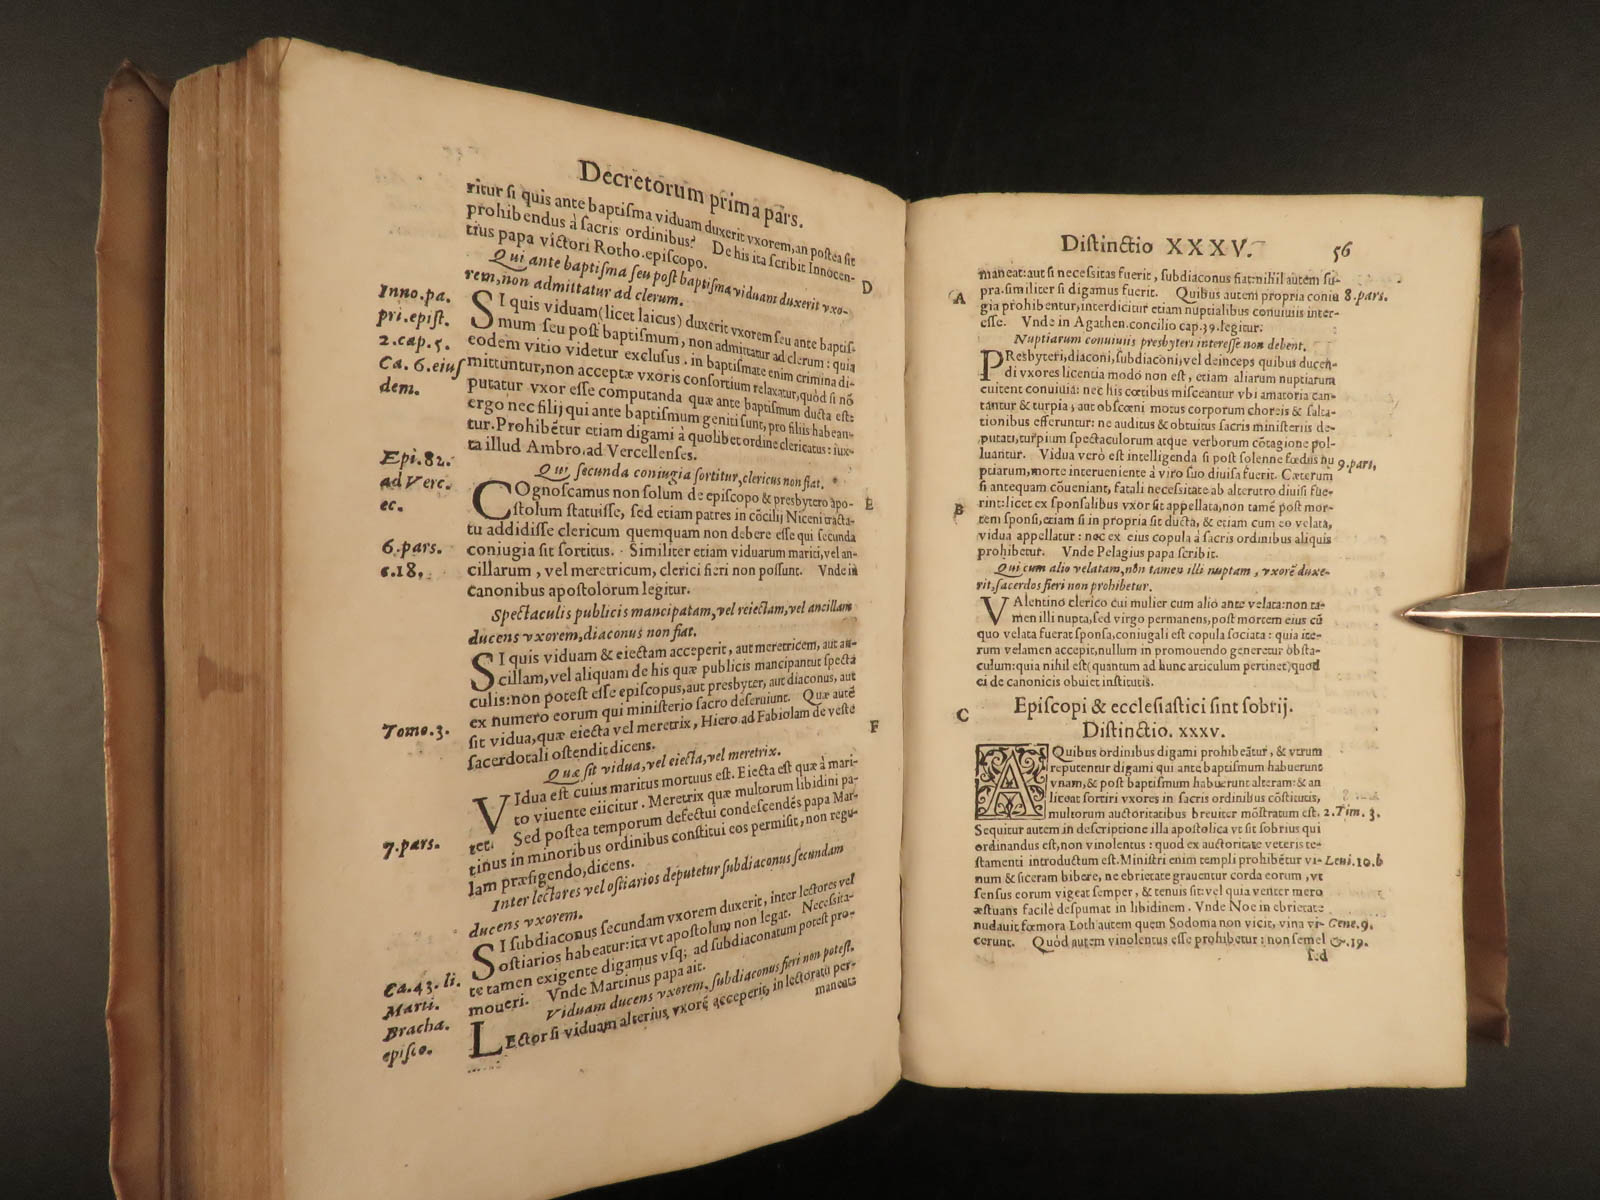 Decretorum prima pars.
ritur ſi quis ante baptiſma viduam duxerit vxorem, an poſtea ſit
prohibendus à ſacris ordinibus? De his ita ſcribit Innocen-
tius papa victori Rotho.epiſcopo.
Qui ante baptiſma ſeu poſt baptiſma viduam duxerit vxo-
rem, non admittatur ad clerum.
D
Inno.pa.
pri.epiſt.
2.cap.5.
Ca. 6.eiuſ
dem.
SI quis viduam (licet laicus) duxerit vxorem ſeu ante baptiſ-
mum ſeu poſt baptiſmum, non admittatur ad clerum: quia
eodem vitio videtur excluſus. in baptiſmate enim crimina di-
mittuntur, non acceptæ vxoris conſortium relaxatur, quòd ſi nō
putatur vxor eſſe computanda quæ ante baptiſmum ducta eſt:
ergo nec filij qui ante baptiſmum geniti ſunt, pro filiis habean-
tur. Prohibētur etiam digami à quolibet ordine clericatus: iux-
ta illud Ambro. ad Vercellenſes.
Qui ſecunda coniugia ſortitur, clericus non fiat.
Epi.82.
ad Verc.
ec.
E
COgnoſcamus non ſolum de epiſcopo & presbytero apo-
ſtolum ſtatuiſſe, ſed etiam patres in cōcilij Niceni tracta-
tu addidiſſe clericum quemquam non debere eſſe qui ſecunda
coniugia ſit ſortitus. Similiter etiam viduarum mariti, vel an-
cillarum, vel meretricum, clerici fieri non poſſunt. Vnde in
canonibus apoſtolorum legitur.
6.pars.
c.18.
Spectaculis publicis mancipatam, vel reiectam, vel ancillam
ducens vxorem, diaconus non fiat.
SI quis viduam & eiectam acceperit, aut meretricem, aut an-
cillam, vel aliquam de his quæ publicis mancipantur ſpecta
culis: non poteſt eſſe epiſcopus, aut presbyter, aut diaconus, aut
ex numero eorum qui miniſterio ſacro deſeruiunt. Quæ autē
ſit vidua, quæ eiecta vel meretrix, Hiero.ad Fabiolam de veſte
ſacerdotali oſtendit dicens.
Tomo.3.
F
Quæ ſit vidua, vel eiecta, vel meretrix.
VIdua eſt cuius maritus mortuus eſt. Eiecta eſt quæ à mari-
to viuente eiicitur. Meretrix quæ multorum libidini pa-
tet: Sed poſtea temporum defectui condeſcendēs papa Mar-
tinus in minoribus ordinibus conſtitui eos permiſit, non regu-
lam præfigendo, dicens.
7.pars.
Inter lectores vel oſtiarios deputetur ſubdiaconus ſecundam
ducens vxorem.
SI ſubdiaconus ſecundam vxorem duxerit, inter lectores vel
oſtiarios habeatur: ita vt apoſtolum non legat. Neceſſita-
te tamen exigente digamus vſq; ad ſubdiaconatum poteſt pro-
moueri. Vnde Martinus papa ait.
Ca.43.li.
Marti.
Bracha.
epiſco.
Viduam ducens vxorem, ſubdiaconus fieri non poteſt.
LEctor ſi viduam alterius, vxorē acceperit, in lectoratu per-
maneat:
Diſtinctio XXXV. 56
maneat: aut ſi neceſſitas fuerit, ſubdiaconus fiat: nihil autem ſu-
pra. ſimiliter ſi digamus fuerit. Quibus autem propria coniu
gia prohibentur, interdicitur etiam nuptialibus conuiuiis inter-
eſſe. Vnde in Agathen.concilio cap.39.legitur:
A
8.pars.
Nuptiarum conuiuiis presbyteri intereſſe non debent.
PResbyteri, diaconi, ſubdiaconi, vel deinceps quibus ducen-
di vxores licentia modò non eſt, etiam aliarum nuptiarum
euitent conuiuia: nec his cœtibus miſceantur vbi amatoria can-
tantur & turpia, aut obſcœni motus corporum choreis & ſalta-
tionibus efferuntur: ne auditus & obtuitus ſacris miniſteriis de-
putati, turpium ſpectaculorum atque verborum cōtagione pol-
luantur. Vidua verò eſt intelligenda ſi poſt ſolenne fœdus nu
ptiarum, morte interueniente à viro ſuo diuiſa fuerit. Cæterum
ſi antequam cōueniant, fatali neceſſitate ab alterutro diuiſi fue-
rint: licet ex ſponſalibus vxor ſit appellata, non tamē poſt mor-
tem ſponſi, etiam ſi in propria ſit ducta, & etiam cum eo velata,
vidua appellatur: nec ex eius copula à ſacris ordinibus aliquis
prohibetur. Vnde Pelagius papa ſcribit.
9.pars,
B
Qui cum alio velatam, non tamen illi nuptam, vxorē duxe-
rit, ſacerdos fieri non prohibetur.
VAlentino clerico cui mulier cum alio ante velata: non ta-
men illi nupta, ſed virgo permanens, poſt mortem eius cū
quo velata fuerat ſponſa, coniugali eſt copula ſociata: quia ite-
rum velamen accepit, nullum in promouendo generetur obſta-
culum: quia nihil eſt (quantum ad hunc articulum pertinet) quod
ei de canonicis obuiet inſtitutis.
C
Epiſcopi & eccleſiaſtici ſint ſobrij.
Diſtinctio. xxxv.
A Quibus ordinibus digami prohibeātur, & vtrum
reputentur digami qui ante baptiſmum habuerunt
vnam, & poſt baptiſmum habuerunt alteram: & an
liceat ſortiri vxores in ſacris ordinibus cōſtitutis,
multorum auctoritatibus breuiter mōſtratum eſt. 2.Tim. 3.
Sequitur autem in deſcriptione illa apoſtolica vt ſit ſobrius qui
ordinandus eſt, non vinolentus: quod ex auctoritate veteris te-
ſtamenti introductum eſt. Miniſtri enim templi prohibētur vi- Leui.10.b
num & ſiceram bibere, ne ebrietate grauentur corda eorum, vt
ſenſus eorum vigeat ſemper, & tenuis ſit: vel quia venter mero
æſtuans facilè deſpumat in libidinem. Vnde Noe in ebrietate
nudauit fœmora Loth autem quem Sodoma non vicit, vina vi- Gene.9.
cerunt. Quòd autem vinolentus eſſe prohibetur: non ſemel &.19.
ſed